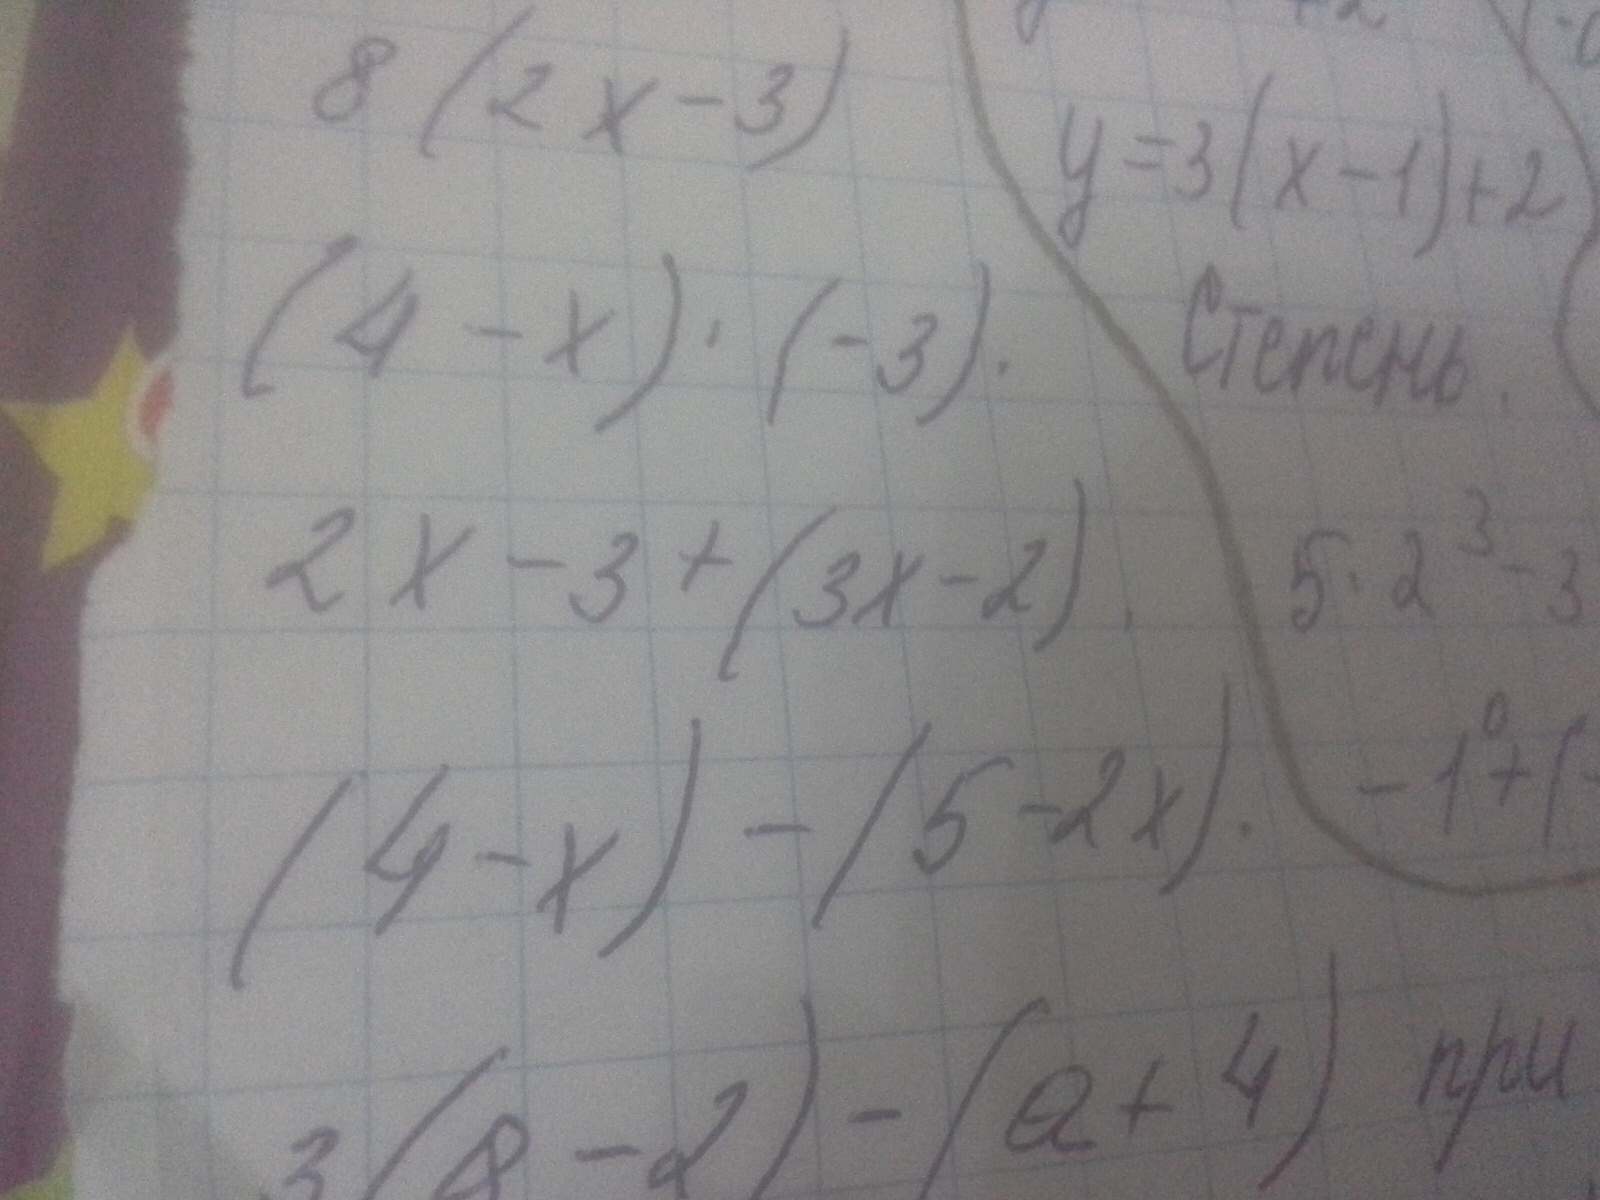 8(2x-3)
(4-x)·(-3).
2x-3+(3x-2).
(4-x)-(5-2x).
3(8-2)-(a+4) при
+2
y=3(x-1)+2
Степень.
5·2³-3
-1⁰+(-